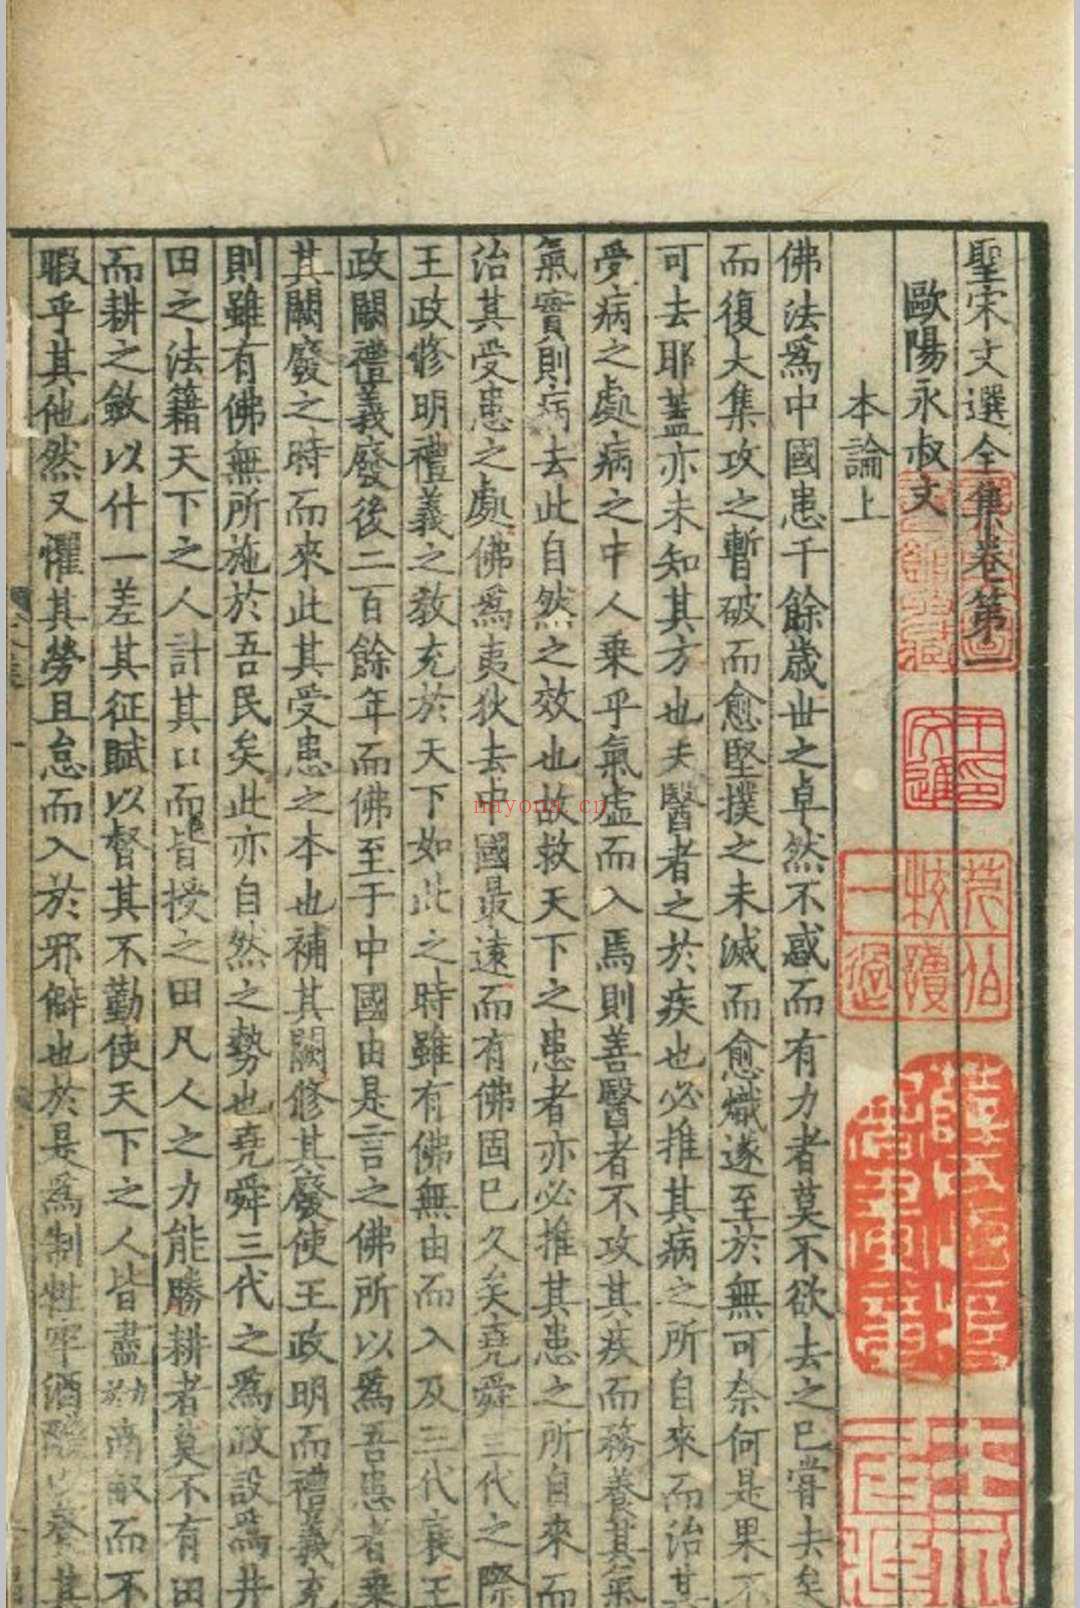 聖宋文選全集卷第一
歐陽永叔文
本論上
佛法爲中國患千餘歲世之卓然不惑而有力者莫不欲去之已嘗去矣
而復大集攻之暫破而愈堅撲之未滅而愈熾遂至於無可奈何是果不
可去耶蓋亦未知其方也夫醫者之於疾也必推其病之所自來而治其
受病之處病之中人乗乎氣虛而入焉則善醫者不攻其疾而務養其氣
氣實則病去此自然之效也故救天下之患者亦必推其患之所自來而
治其受患之處佛爲夷狄去中國最遠而有佛固已久矣堯舜三代之際
王政修明禮義之教充於天下如此之時雖有佛無由而入及三代衰王
政闕禮義廢後二百餘年而佛至于中國由是言之佛所以爲吾患者乗
其闕廢之時而來此其受患之本也補其闕修其廢使王政明而禮義充
則雖有佛無所施於吾民矣此亦自然之勢也堯舜三代之爲政設爲井
田之法籍天下之人計其口而皆授之田凡人之力能勝耕者莫不有田
而耕之斂以什一差其征賦以督其不勤使天下之人皆盡力於南畝而不
暇乎其他然又懼其勞且怠而入於邪僻也於是爲制牲牢酒醴以養其
nayona.cn